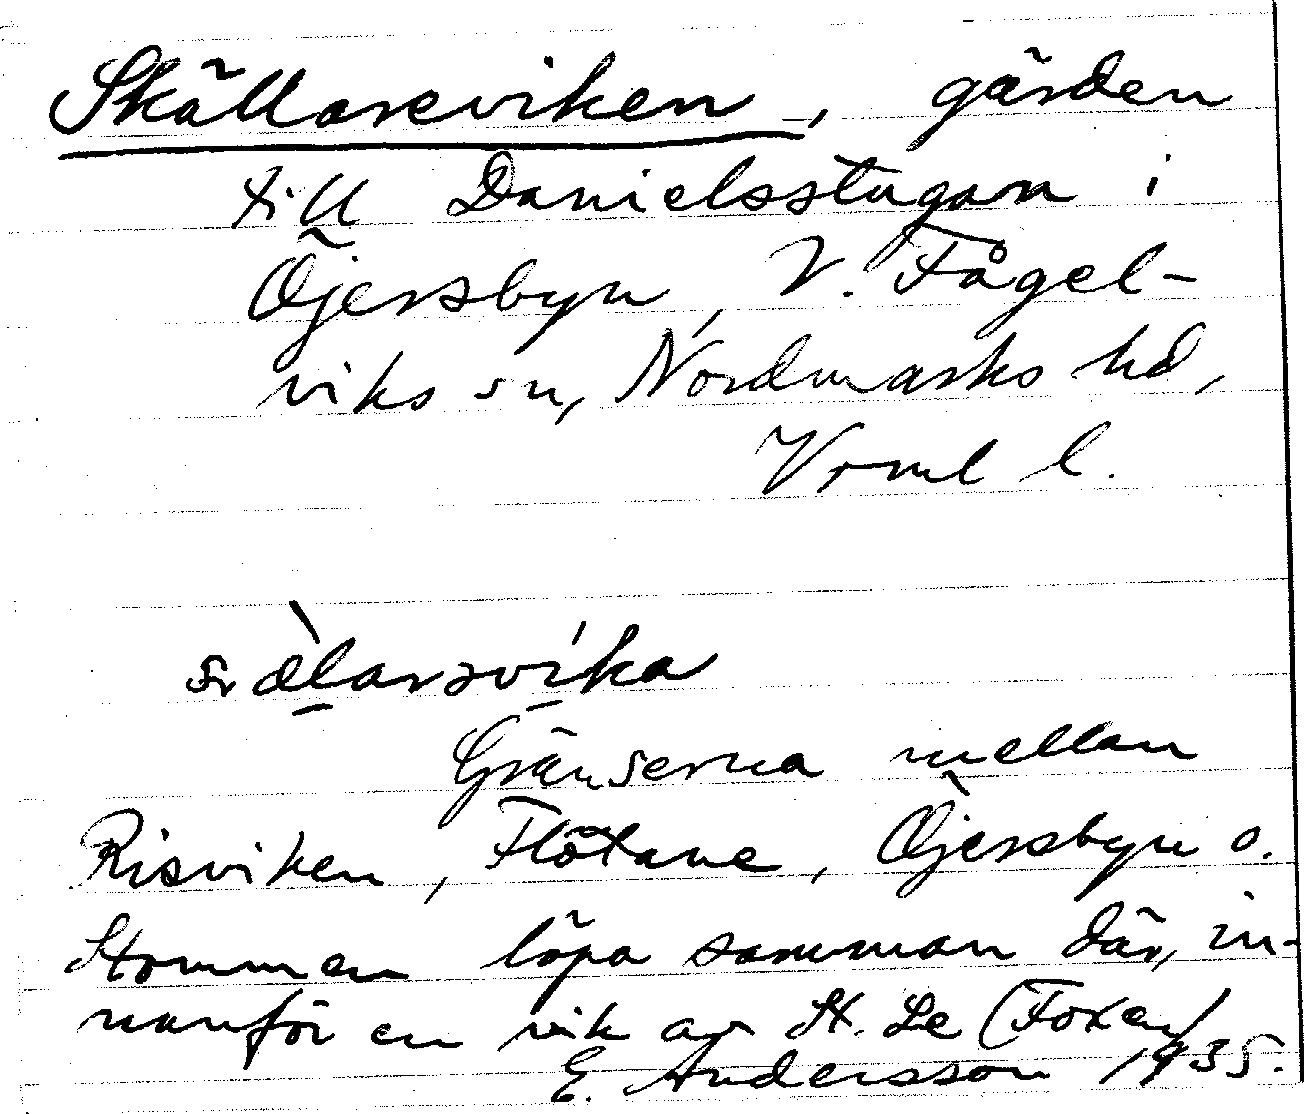 Skällareviken, gärden
till Danielsstugan i
Öjersbyn, V. Fågel-
viks sn, Nordmarks hd,
Vrml l.
Gränserna mellan
Risviken, Flötane, Öjersbyn o.
Stommen löpa samman där, in-
nanför en vik av St. Le (Foxen)
E. Andersson 1935.